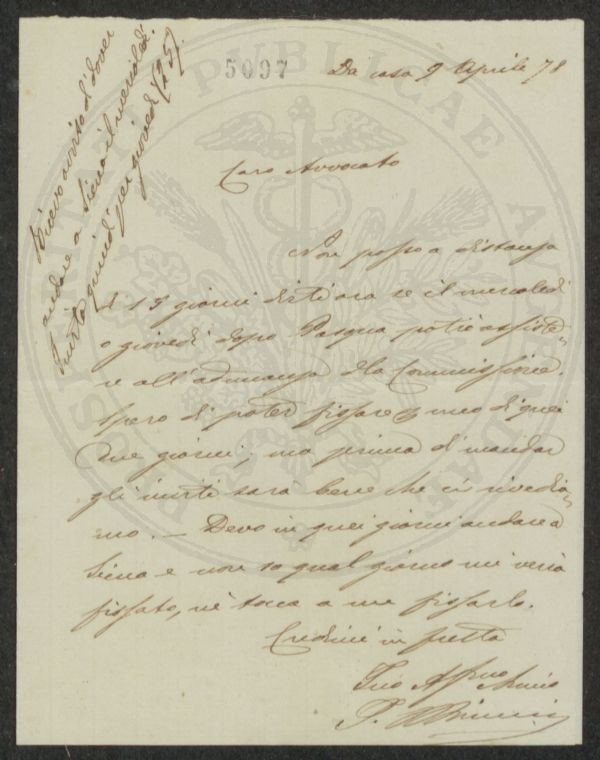 5097
Da casa 9 Aprile 78
Caro Avvocato
Non posso a distanza
di 15 giorni dirti ora se il mercoledì
o giovedì dopo Pasqua potrò assiste-
re all'adunanza della Commissione.
Spero di poter fissare uno di quei
due giorni; ma prima di mandar
gli inviti sarà bene che ci rivedia-
mo. — Devo in quei giorni andare a
Siena e non so qual giorno mi verrà
fissato, nè tocca a me fissarlo.
Credimi in fretta
Tuo Affmo Amico
P.
Ricevo avviso di dover
andare a Siena il mercoledì.
Invita quindi per giovedì (25).
PROSPERITATI PUBLICAE AUGENDAE